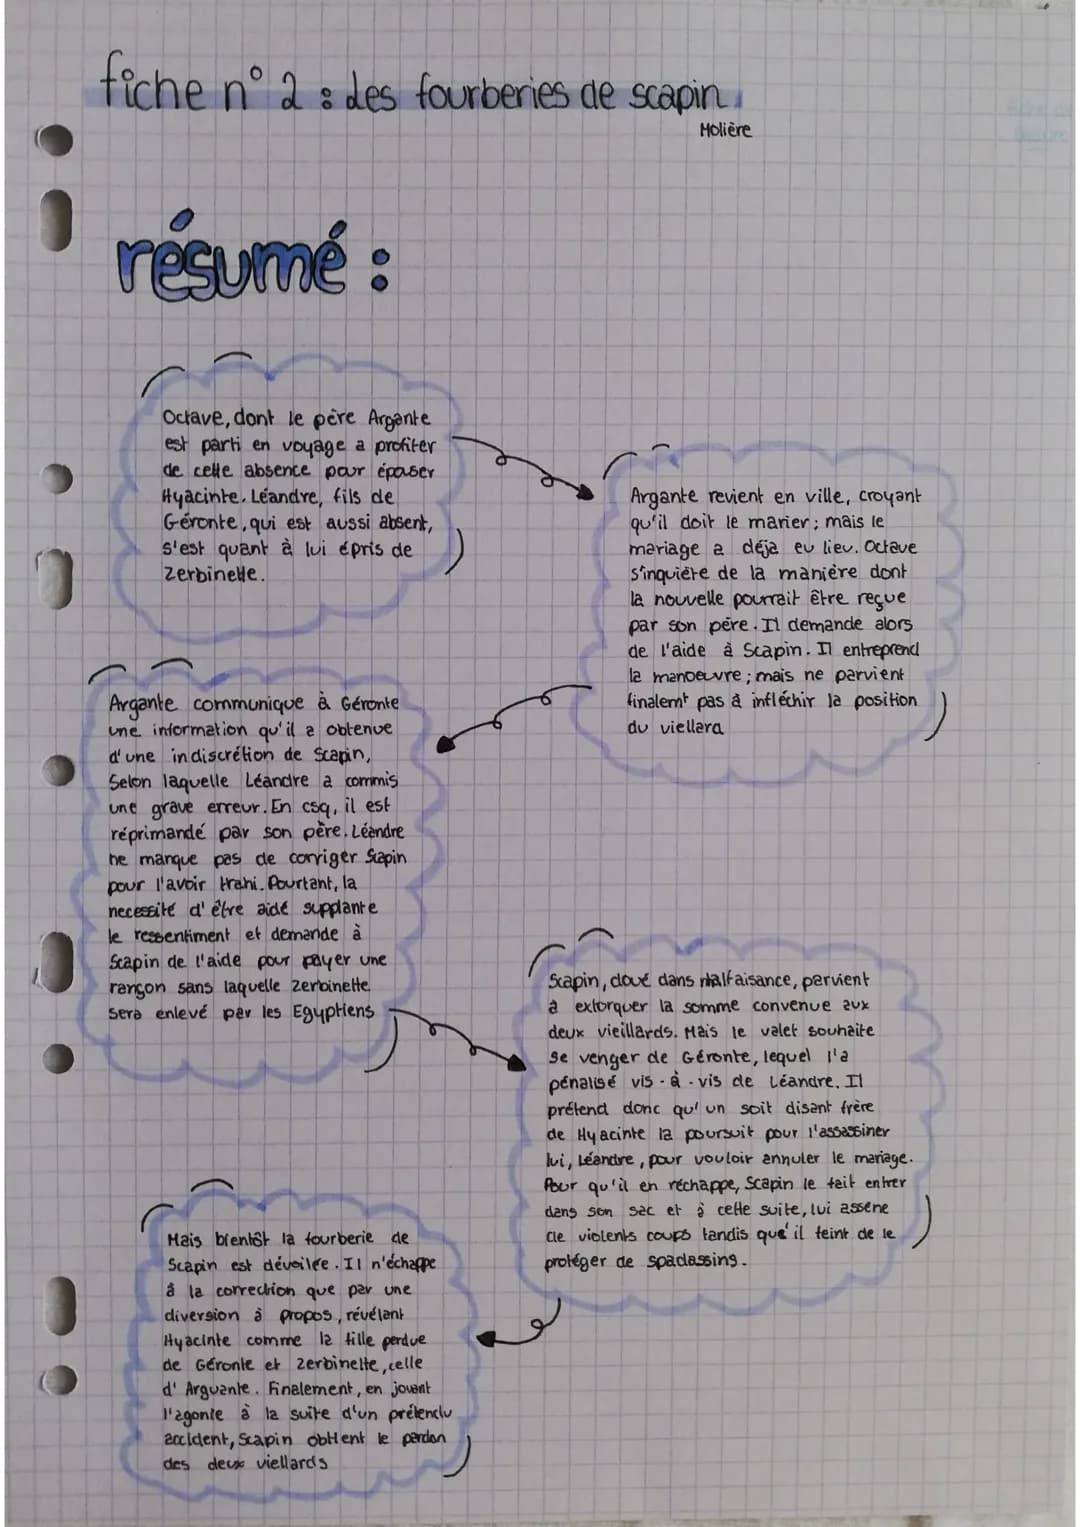 fiche n° 2 : des fourberies de scapin
Molière
résumé :
Octave, dont le père Argante
est parti en voyage a profiter
de cette absence pour épouser
Hyacinte. Léandre, fils de
Géronte, qui est aussi absent,
s'est quant à lui épris de
Zerbinette.
Argante revient en ville, croyant
qu'il doit le marier ; mais le
mariage a déja eu lieu. Octave
s'inquiète de la manière dont
la nouvelle pourrait être reçue
par son père. Il demande alors
de l'aide à Scapin. Il entreprend
la manoeuvre ; mais ne parvient
finalemt pas à infléchir la position
du viellara
Argante communique à Géronte
une information qu'il a obtenue
d'une indiscrétion de Scapin,
Selon laquelle Léandre a commis
une grave erreur. En csq, il est
réprimandé par son père. Léandre
ne manque pas de corriger Scapin
pour l'avoir trahi. Pourtant, la
necessité d'être aidé supplante
le ressentiment et demande à
Scapin de l'aide pour payer une
rançon sans laquelle Zerbinette
sera enlevé par les Egyptiens
Scapin, doué dans malfaisance, parvient
à extorquer la somme convenue aux
deux vieillards. Mais le valet souhaite
se venger de Géronte, lequel l'a
pénalisé vis-à-vis de Léandre. Il
prétend donc qu'un soit disant frère
de Hyacinte la poursuit pour l'assassiner
lui, Léandre, pour vouloir annuler le mariage.
Pour qu'il en réchappe, Scapin le fait entrer
dans son sac et à cette suite, lui assène
de violents coups tandis que il feint de le
protéger de spadassins.
Mais bientôt la fourberie de
Scapin est dévoilée. Il n'échappe
à la correction que par une
diversion à propos, révélant
Hyacinte comme la fille perdue
de Géronte et Zerbinette, celle
d'Arguante. Finalement, en jouant
l'agonie à la suite d'un prétendu
accident, Scapin obtient le pardon
des deux viellards